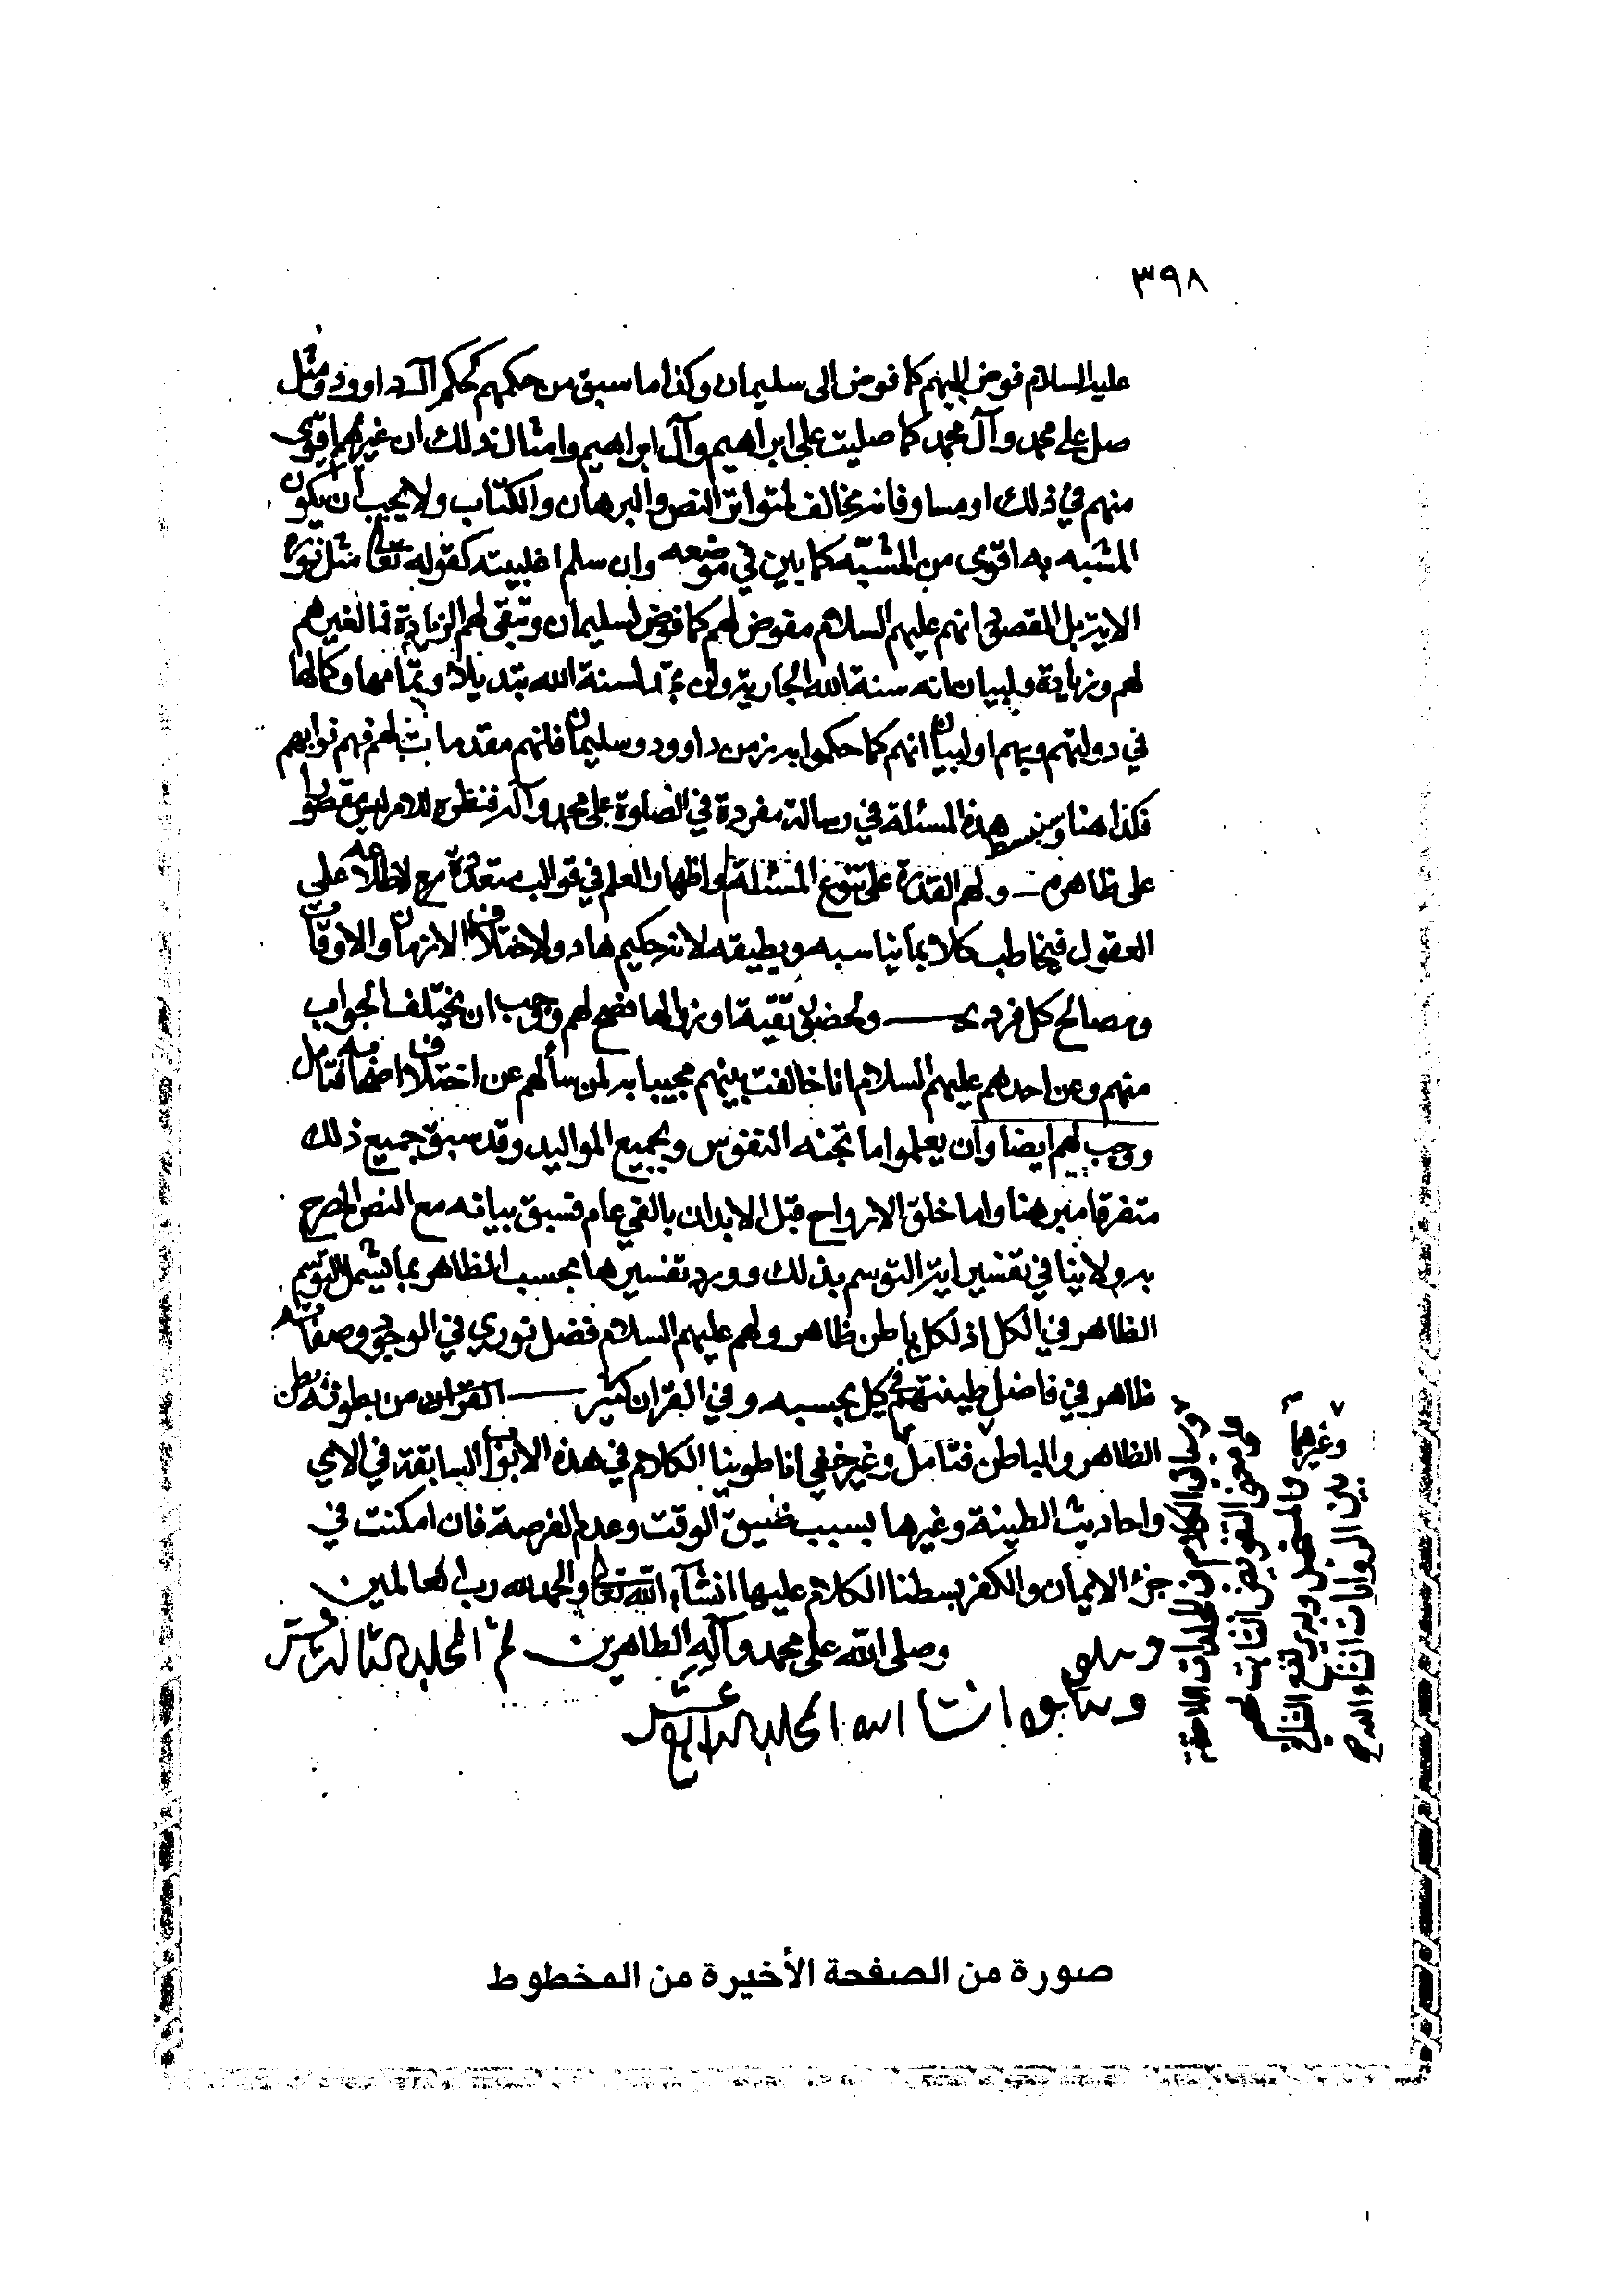 ٣٩٨
عليه السلام فوض اليهم كما فوض الى سليمان وكذا ما سبق من حكمهم كحكم آل داوود ومثل
صل على محمد وآل محمد كما صليت على ابراهيم وآل ابراهيم وامثال ذلك ان غيرهم اقوى
منهم في ذلك او مساو فانه مخالف لمتواتر النص والبرهان والكتاب ولا يجب ان يكون
المشبه به اقوى من المشبه كما بين في موضعه وان سلم اغلبيته كقوله تعا مثل نوره
الاية بل القصد انهم عليهم السلام مفوض لهم كما فوض لسليمان وتبقى لهم الزيادة فما لغيرهم
لهم وزيادة ولبيان انه سنة الله الجارية ولن تجد لسنة الله تبديلا وتمامها وكمالها
في دولتهم وبهم او لبيان انهم كما حكموا به زمن داوود وسليمان فانهم مقدمات لهم فهم نوابهم
فكذا هنا وسنبسط هذه المسئلة في رسالة مفردة في الصلوة على محمد وآله فنظره للامر ليس مقصوراً
على ظاهره ولهم القدرة على تنوع المسئلة واظهار العلم في قوالب متعددة مع اطلاعه على
العقول فيخاطب كلا بما يناسبه ويطيقه لانه حكيم هاد ولاختلاف الازمان والاوقات
ومصالح كل فرد ولحضور تقية او زوالها فصح لهم ووجب ان يختلف الجواب
منهم وعن احدهم عليهم السلام انا خالفت بينهم مجيبا به لمن سألهم عن اختلاف اصحابه فتأمل
ووجب لهم ايضا وان يعلموا ما تجنه النفوس وبجميع المواليد وقد سبق جميع ذلك
متفرقا مبرهنا واما خلق الارواح قبل الابدان بالفي عام فسبق بيانه مع النص المصرح
به ولا ينافي تفسير اية التوسم بذلك وورد تفسيرها بحسب الظاهر بما يشمل التوسم
الظاهر في الكل اذ لكل باطن ظاهر ولهم عليهم السلام فضل نوري في الوجود وصفاته
ظاهر في فاضل طينتهم كل بحسبه وفي القران كثير القران من بطونه بطن
الظاهر والباطن فتأمل وغير خفي انا طوينا الكلام في هذه الابواب السابقة في الاي
واحاديث الطينة وغيرها بسبب ضيق الوقت وعدم الفرصة فان امكنت في
جزء الايمان والكفر بسطنا الكلام عليها انشآء الله تعا والحمد لله رب العالمين
وصلى الله على محمد وآله الطاهرين تم المجلد الثالث عشر
ويتلوه انشا الله المجلد الرابع عشر
صورة من الصفحة الأخيرة من المخطوط